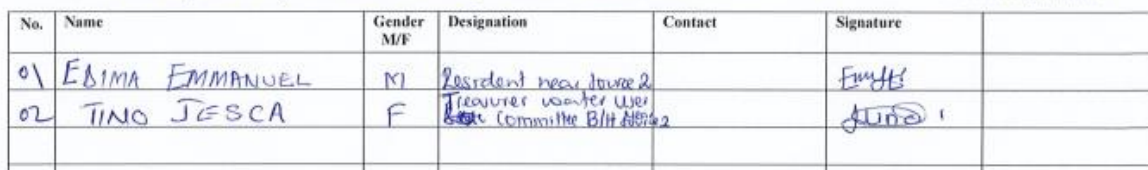 No. Name Gender M/F Designation Contact Signature
01 EDIMA EMMANUEL M Resident near source 2
02 TINO JESCA F Treasurer water user
Committee B/H